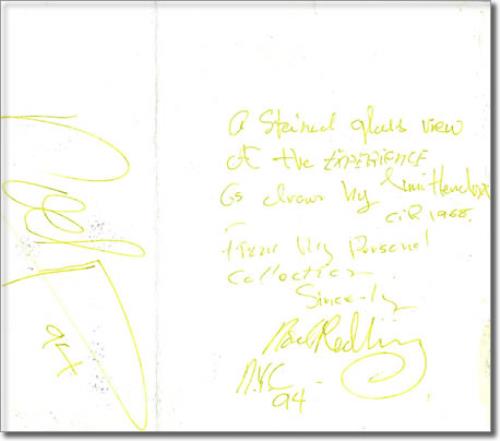 A Stained glass view
Of the EXPERIENCE
as drawn by Jimi Hendrix
CIR 1968.
From My Personal
Collection
Sincerely
Noel Redding
N.Y.C
94 -
94